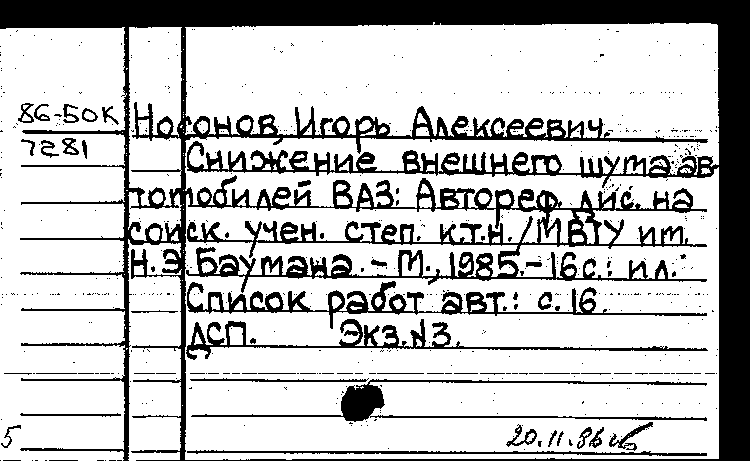 86-50к Носонов, Игорь Алексеевич.
7281 Снижение внешнего шума ав-
томобилей ВАЗ: Автореф. дис. на
соиск. учен. степ. к.т.н. /МВТУ им.
Н.Э. Баумана. - М., 1985.- 16 с.: ил.
Список работ авт.: с. 16.
ДСП. Экз. N3.
5 20.11.86